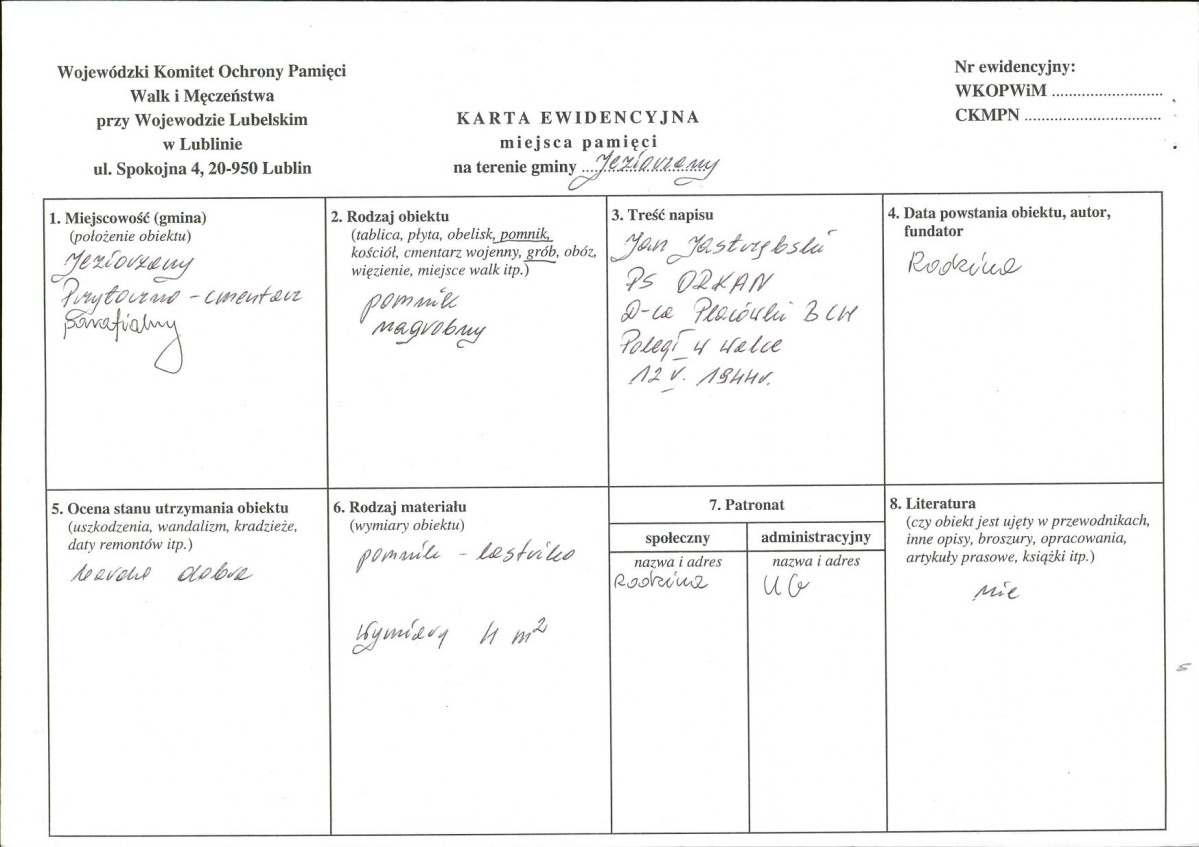 Wojewódzki Komitet Ochrony Pamięci
Walk i Męczeństwa
przy Wojewodzie Lubelskim
w Lublinie
ul. Spokojna 4, 20-950 Lublin
KARTA EWIDENCYJNA
miejsca pamięci
na terenie gminy Jeziorzany
Nr ewidencyjny:
WKOPWiM ..........................
CKMPN ................................
1. Miejscowość (gmina)
(położenie obiektu)
Jeziorzany
Przytoczno - cmentarz
parafialny
2. Rodzaj obiektu
(tablica, płyta, obelisk, pomnik,
kościół, cmentarz wojenny, grób, obóz,
więzienie, miejsce walk itp.)
pomnik
nagrobny
3. Treść napisu
Jan Jastrzębski
PS ORKAN
D-ca Placówki BCH
Poległ w walce
12 V. 1944r.
4. Data powstania obiektu, autor,
fundator
Rodzina
5. Ocena stanu utrzymania obiektu
(uszkodzenia, wandalizm, kradzieże,
daty remontów itp.)
bardzo dobra
6. Rodzaj materiału
(wymiary obiektu)
pomnik - lastriko
Wymiary 4 m²
7. Patronat
społeczny
nazwa i adres
Rodzina
administracyjny
nazwa i adres
UG
8. Literatura
(czy obiekt jest ujęty w przewodnikach,
inne opisy, broszury, opracowania,
artykuły prasowe, książki itp.)
nie